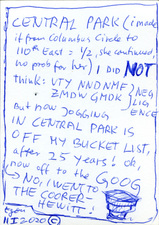 CENTRAL PARK (i made
it from Columbus Circle to
110th East: 1/2, she continued
no prob for her) I DID NOT
think: UTY NNDNMF) NEG
ZMDW GMDK) LIG
but now JOGGING ENCE
IN CENTRAL PARK IS
OFF MY BUCKET LIST,
after 25 years! ok,
now off to the GOOG
→ NO, I WENT TO
THE COORER-
HEWITT!
II I 2020 ©